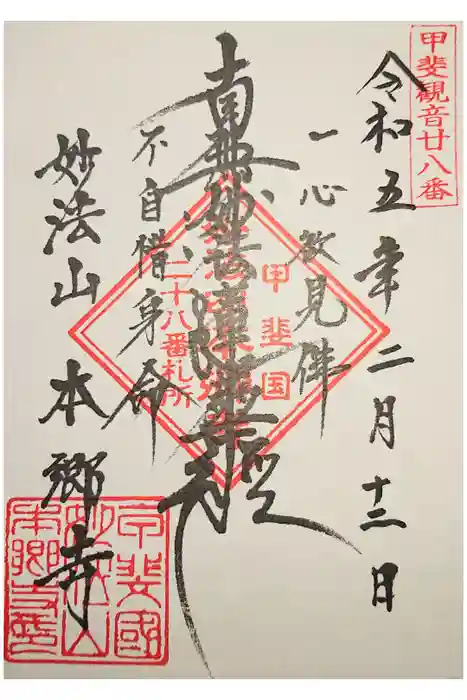 甲斐観音廿八番
令和五年二月十二日
一心欲見佛
南無妙法蓮華経
不自惜身命
妙法山 本郷寺
甲斐国
二十八番札所
甲斐國
妙法山
本郷寺